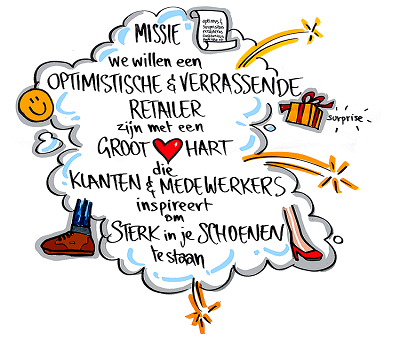 MISSIE
we willen een
OPTIMISTISCHE & VERRASSENDE
RETAILER
zijn met een
GROOT HART
die
KLANTEN & MEDEWERKERS
inspireert
om
STERK in je SCHOENEN
te staan
surprise